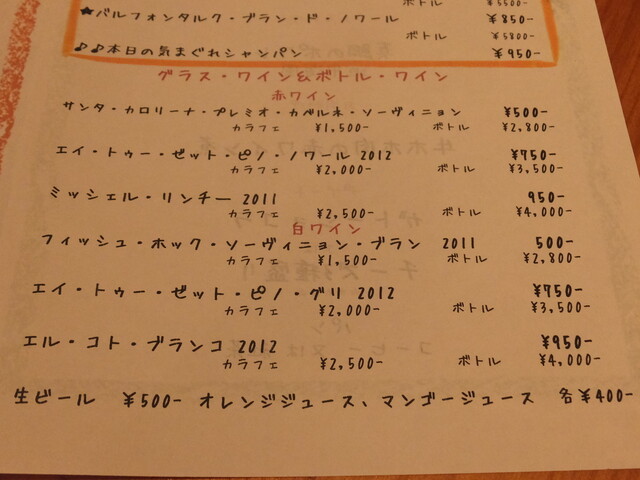 ボトル ¥5500-
★バルフォンタルク・ブラン・ド・ノワール ¥850-
ボトル ¥5800-
♪♪本日の気まぐれシャンパン ¥950-
グラス・ワイン&ボトル・ワイン
赤ワイン
サンタ・カロリーナ・プレミオ・カベルネ・ソーヴィニョン ¥500-
カラフェ ¥1,500- ボトル ¥2,800-
エイ・トゥー・ゼット・ピノ・ノワール 2012 ¥750-
カラフェ ¥2,000- ボトル ¥3,500-
ミッシェル・リンチー 2011 950-
カラフェ ¥2,500- ボトル ¥4,000-
白ワイン
フィッシュ・ホック・ソーヴィニョン・ブラン 2011 500-
カラフェ ¥1,500- ボトル ¥2,800-
エイ・トゥー・ゼット・ピノ・グリ 2012 ¥750-
カラフェ ¥2,000- ボトル ¥3,500-
エル・コト・ブランコ 2012 ¥950-
カラフェ ¥2,500- ボトル ¥4,000-
生ビール ¥500- オレンジジュース、マンゴージュース 各¥400-